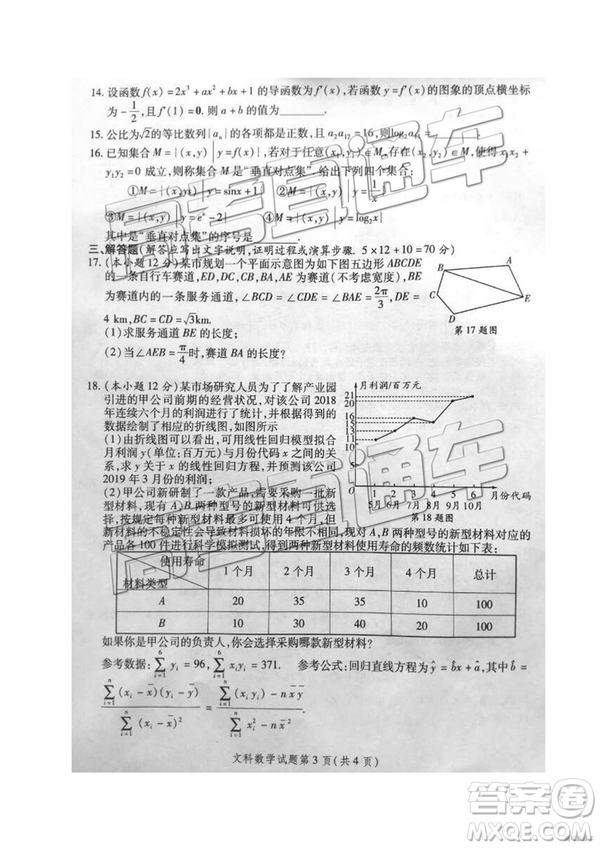 14. 设函数 f(x)=2x³+ax²+bx+1 的导函数为 f′(x),若函数 y=f′(x) 的图象的顶点横坐标
为 -1/2, 且 f′(1)=0. 则 a+b 的值为________.
15. 公比为√2的等比数列{aₙ}的各项都是正数, 且 a₂a₁₂=16, 则log₂
16. 已知集合 M={(x,y)|y=f(x)}, 若对于任意(x₁, ∈M, 存在(x₂,y₂)∈M, 使得 x₁x₂+
y₁y₂=0 成立, 则称集合 M 是“垂直对点集”. 给出下列四个集合:
①M={(x,y)|y=sinx+1} ②M={(x,y)|y=1/x}
③M={(x,y)|y=eˣ-2} ④M={(x,y)|y=log₂x}
其中是“垂直对点集”的序号是
三、解答题(解答应写出文字说明,证明过程或演算步骤. 5×12+10=70 分)
17. (本小题 12 分)某市规划一个平面示意图为如下图五边形 ABCDE
的一条自行车赛道, ED, DC, CB, BA, AE 为赛道(不考虑宽度), BE
为赛道内的一条服务通道, ∠BCD=∠CDE=∠BAE=2π/3, DE=
4 km, BC=CD=√3km.
(1)求服务通道 BE 的长度;
(2)当∠AEB=π/4时, 赛道 BA 的长度?
B
A
C
E
D
第 17 题图
18. (本小题 12 分)某市场研究人员为了了解产业园
引进的甲公司前期的经营状况, 对该公司 2018
年连续六个月的利润进行了统计, 并根据得到的
数据绘制了相应的折线图, 如图所示
(1)由折线图可以看出, 可用线性回归模型拟合
月利润 y(单位: 百万元)与月份代码 x 之间的关
系, 求 y 关于 x 的线性回归方程, 并预测该公司
2019 年 3 月份的利润;
(2)甲公司新研制了一款产品, 需要采购一批新
型材料, 现有 A, B 两种型号的新型材料可供选择,
按规定每种新型材料最多可使用 4 个月, 但
新材料的不稳定性会导致材料损坏的年限不同, 现对 A, B 两种型号的新型材料对应的
产品各 100 件进行科学模拟测试, 得到两种新型材料使用寿命的频数统计如下表:
月利润/百万元
21
20
16
15
13
11
O
1 2 3 4 5 6 月份代码
5月 6月 7月 8月 9月 10月
第 18 题图
使用寿命
材料类型 1 个月 2 个月 3 个月 4 个月 总计
A 20 35 35 10 100
B 10 30 40 20 100
如果你是甲公司的负责人, 你会选择采购哪款新型材料?
参考数据: ∑⁶ᵢ₌₁ yᵢ=96, ∑⁶ᵢ₌₁ xᵢyᵢ=371. 参考公式: 回归直线方程为 ŷ=b̂x+â, 其中 b̂=
∑ⁿᵢ₌₁(xᵢ-x̄)(yᵢ-ȳ) / ∑ⁿᵢ₌₁(xᵢ-x̄)² = (∑ⁿᵢ₌₁xᵢyᵢ-nx̄ȳ) / (∑ⁿᵢ₌₁xᵢ²-nx̄²)
文科数学试题第 3 页(共 4 页)
高考直通车
高考直通车
答案圈
MXQE.COM